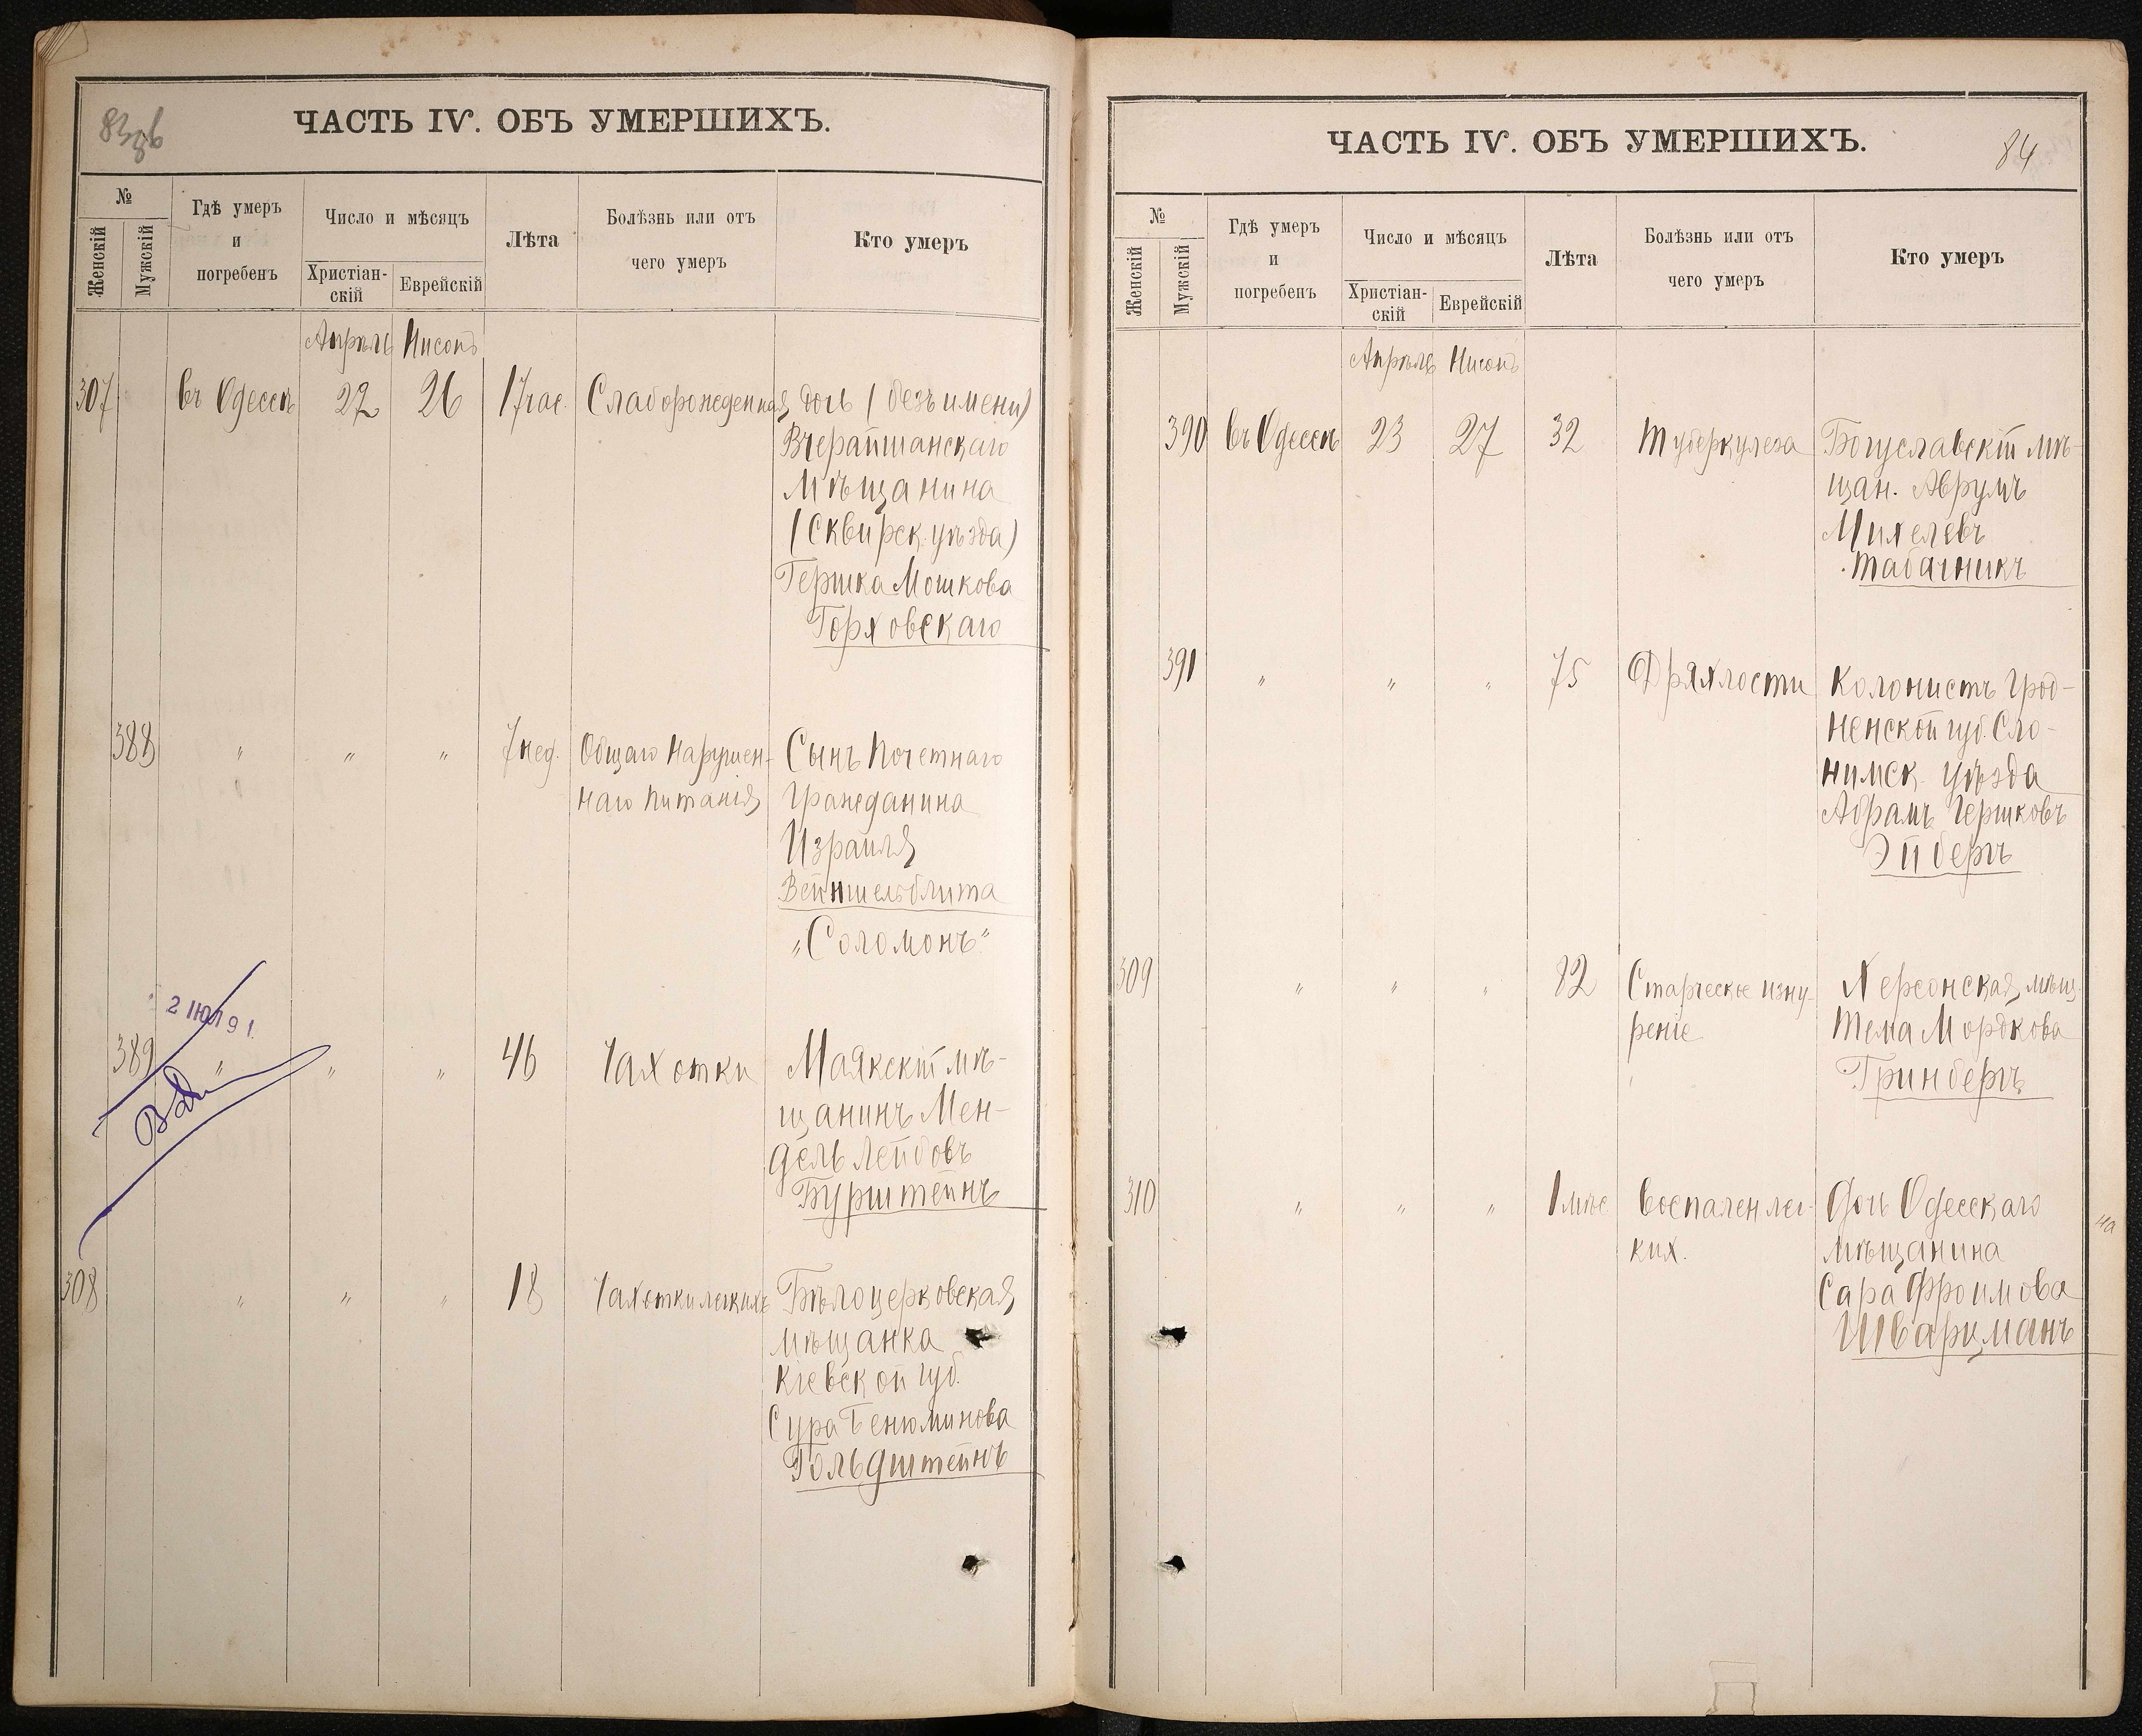 83об
ЧАСТЬ IV. ОБЪ УМЕРШИХЪ.
№
Женскій
Мужскій
Гдѣ умеръ
и
погребенъ
Число и мѣсяцъ
Христіан-
скій
Еврейскій
Лѣта
Болѣзнь или отъ
чего умеръ
Кто умеръ
Апрѣль Нисонъ
307 въ Одессѣ 22 26 17 час. Слаборожденная дочь (безъ имени)
Вчерайшанскаго
мѣщанина
(Сквирск. уѣзда)
Гершка Мошкова
Горховскаго
388 " " " 7 нед. Общаго Нарушен- Сынъ Почетнаго
наго питанія гражданина
Израиля
Вейншельблита
"Соломонъ"
2 ІЮЛ 91
389 " " " 46 Чахотки Маякскій мѣ-
щанинъ Мен-
дель Лейбовъ
Бурштейнъ
308 " " " 18 Чахотки легкихъ Бѣлоцерковская
мѣщанка
Кіевской губ.
Сура Бенюминова
Гольдштейнъ
ЧАСТЬ IV. ОБЪ УМЕРШИХЪ.
84
№
Женскій
Мужскій
Гдѣ умеръ
и
погребенъ
Число и мѣсяцъ
Христіан-
скій
Еврейскій
Лѣта
Болѣзнь или отъ
чего умеръ
Кто умеръ
Апрѣль Нисонъ
390 въ Одессѣ 23 27 32 Туберкулеза Богуславскій мѣ-
щан. Аврумъ
Михелевъ
Табачникъ
391 " " " 75 Дряхлости Колонистъ Грод-
ненской губ. Сло-
нимск. уѣзда
Абрамъ Гершковъ
Эйбергъ
309 " " " 82 Старческое изну- Херсонская мѣщ.
реніе Тема Мордкова
Гринбергъ
310 " " " 1 мѣс Воспален лег- Дочь Одесскаго
ких. мѣщанина
на
Сара Фроимова
Шварцманъ